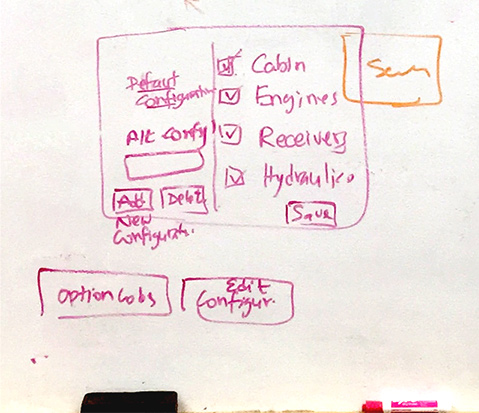 Default
Configuration
Alt Config
Add
Delete
New
Configurat.
Cabin
Engines
Receivers
Hydraulics
Save
Option Cobs
Edit
Configur.